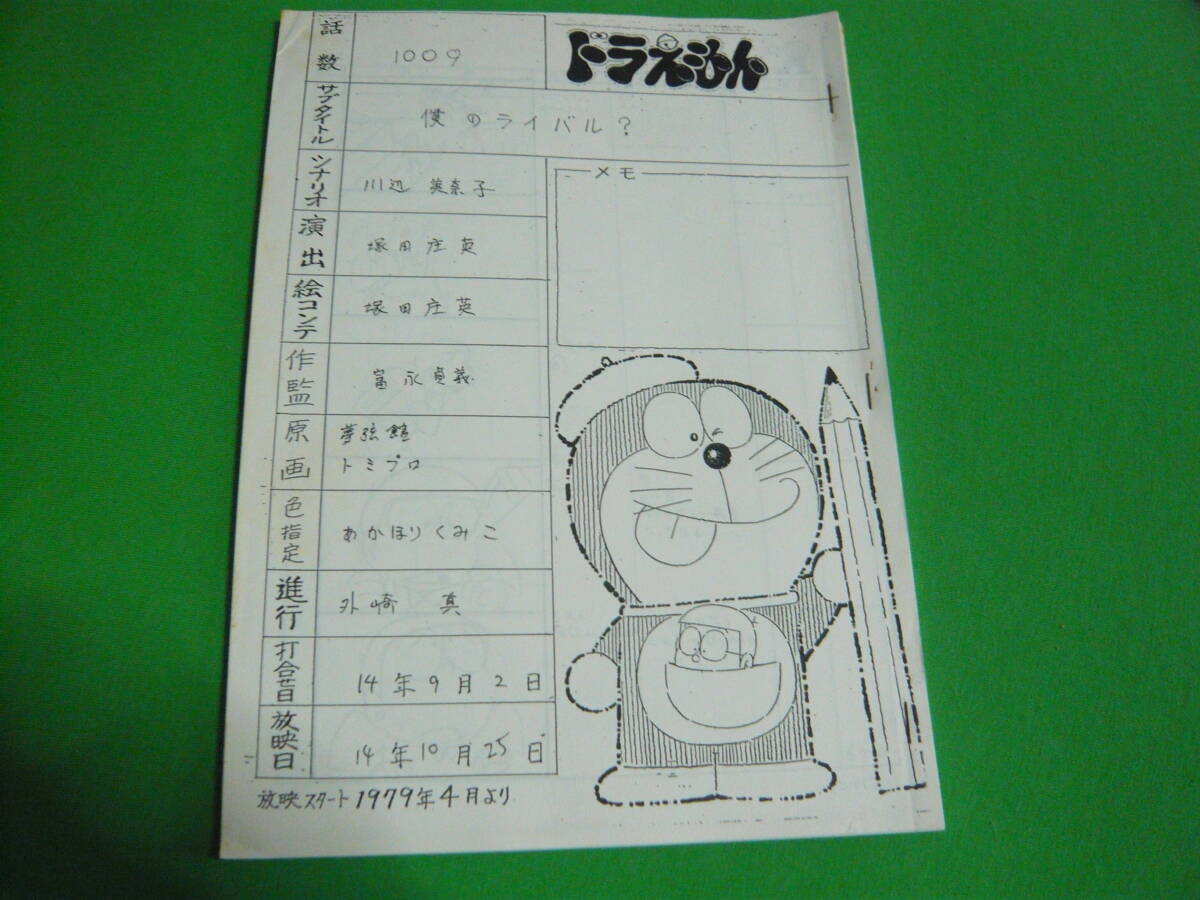 話数 1009
ドラえもん
サブタイトル 僕のライバル?
シナリオ 川辺 美奈子
メモ
演出 塚田庄英
絵コンテ 塚田庄英
作監 富永貞義
原画 夢弦館
トミプロ
色指定 あかほりくみこ
進行 外崎 真
打合せ日 14年9月2日
放映日 14年10月25日
放映スタート1979年4月より